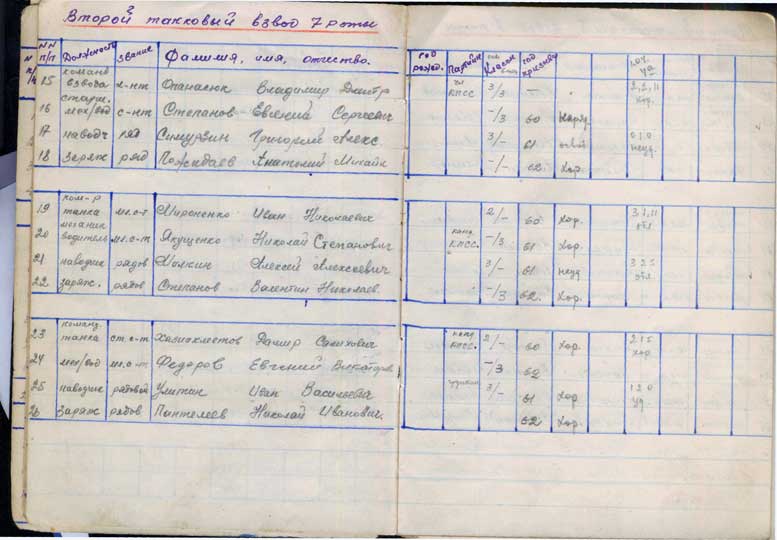 Второй танковый взвод 7 роты
NN п/п Должность Звание Фамилия, имя, отчество. год рожд. Партийн. Классн. год призыва
15 команд. взвода л-нт Опанасюк Владимир Дмитр чл. КПСС 3/3 - 2,2,11 хор.
16 старш. мех/вод с-нт Степанов Евгений Сергеевич -/3 60
17 наводч ряд Григорий Алекс. 3/- 61 0 1 0 неуд.
18 заряж ряд Пожидаев Анатолий Михайл -/- 62 Хор.
19 ком-р танка мл.с-т Мироненко Иван Николаевич 2/- 60 Хор. 31,11 отл
20 механик водитель мл.с-т Якущенко Николай Степанович канд. КПСС. -/3 61 Хор.
21 наводчик рядов Алексей Алексеевич 3/- 61 неуд 3 2 5 отл.
22 заряж. рядов Степанов Валентин Николаев. -/3 62. Хор.
23 команд. танка ст.с-т Хазиахметов Дамир Салихович канд. КПСС. 2/- 60 Хор. 2 1 5 хор
24 мех/вод мл.с-т Федоров Евгений -/3 62
25 наводчик рядовой Улитин Иван Васильевич 3/- 61 Хор 1 2 0 уд.
26 заряж рядов Пантелеев Николай Иванович. 62 Хор.